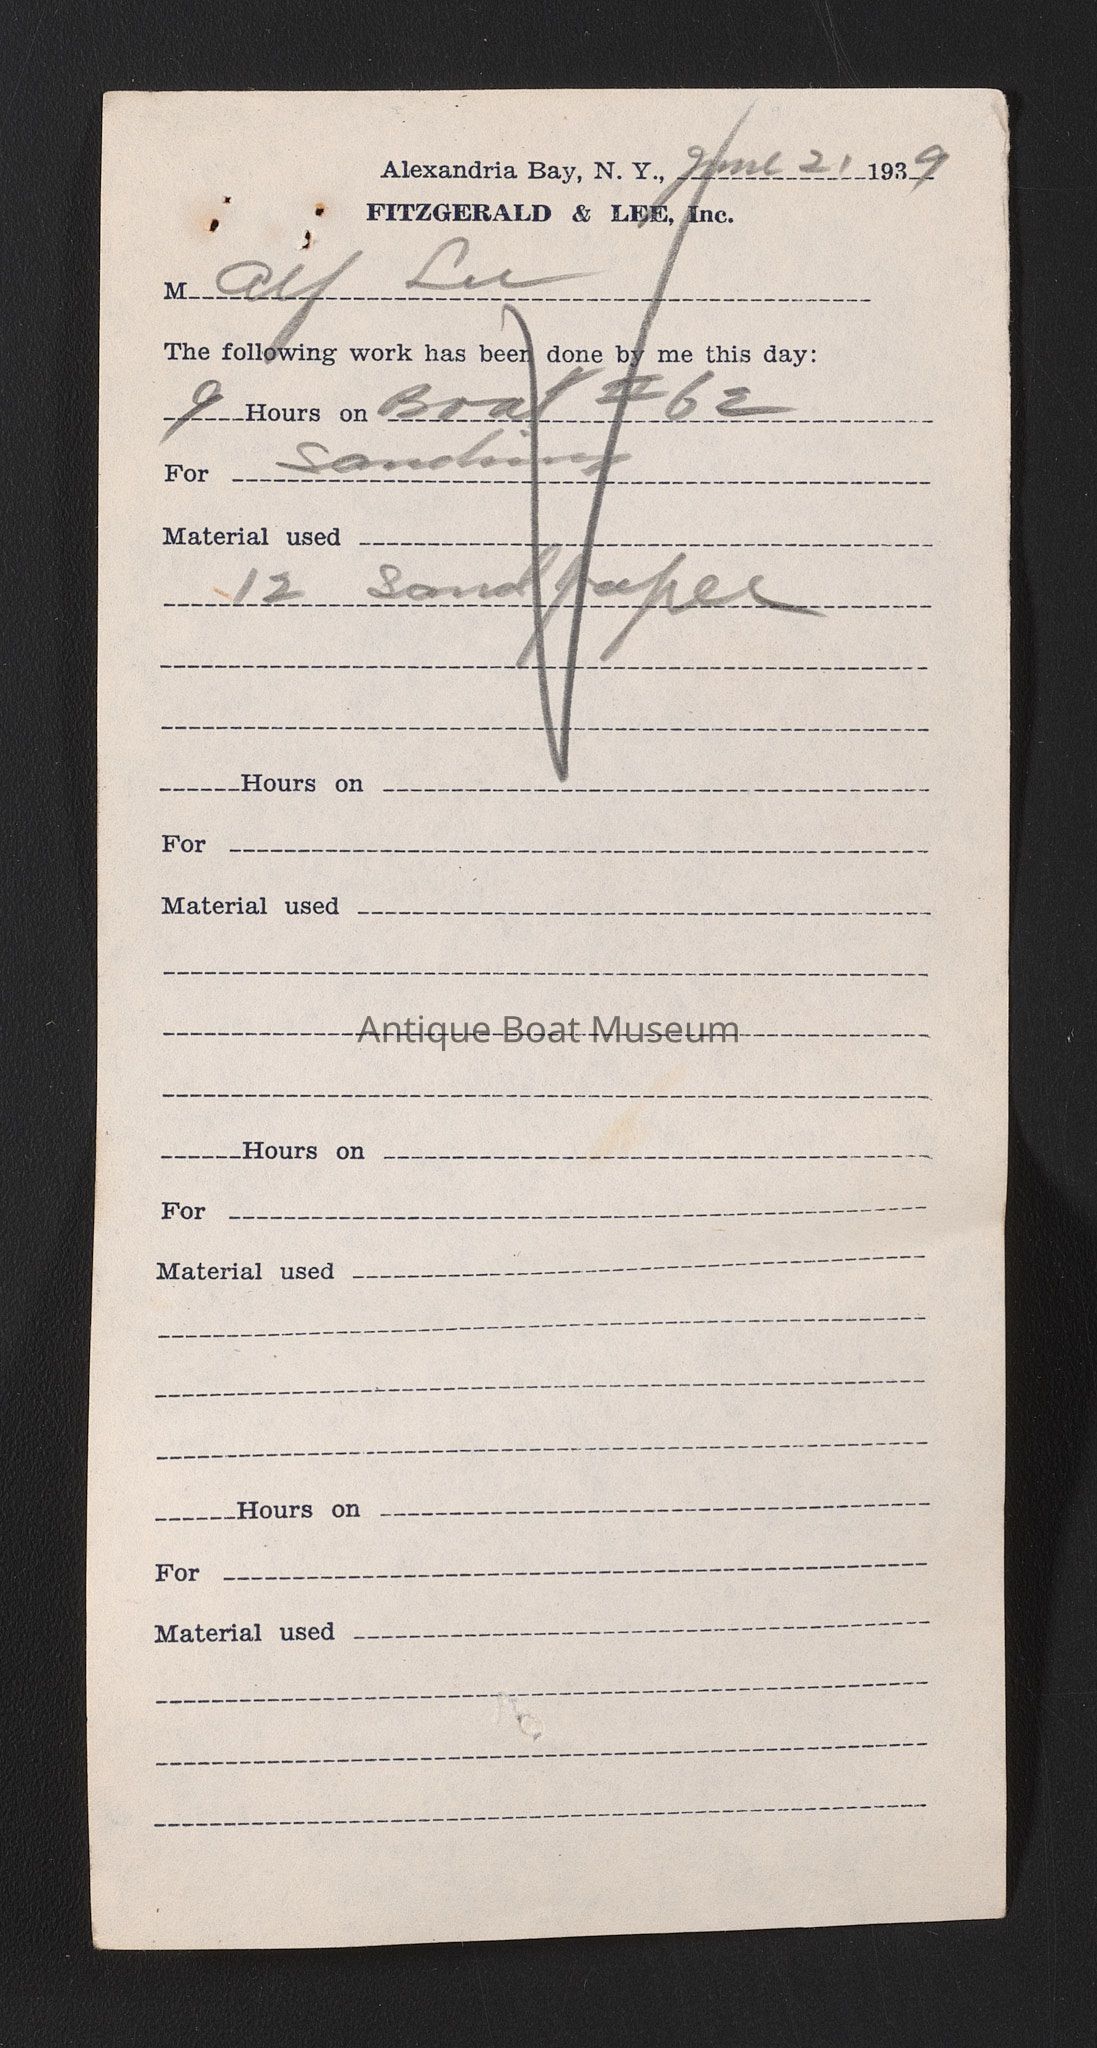 Alexandria Bay, N. Y., June 21 1939
FITZGERALD & LEE, Inc.
M Alf Lee
The following work has been done by me this day:
9 Hours on Boat # 62
For Sanding
Material used
12 Sandpaper
Hours on
For
Material used
Antique Boat Museum
Hours on
For
Material used
Hours on
For
Material used